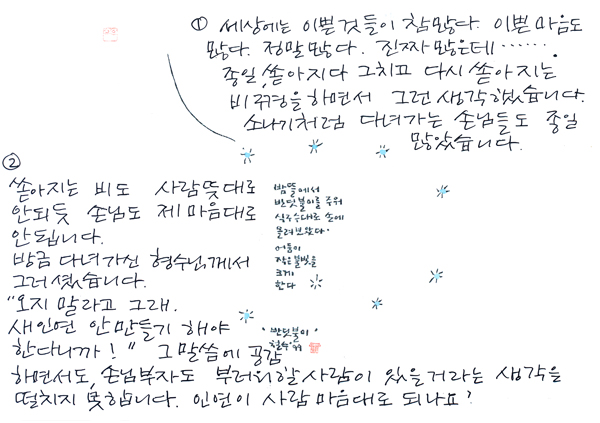 ① 세상에는 이쁜것들이 참많다. 이쁜마음도
많다. 정말많다. 진짜많은데‥‥‥.
종일, 쏟아지다 그치고 다시 쏟아지는
비구경을하면서 그런 생각했습니다.
소나기처럼 다녀가는 손님들도 종일
많았습니다.
②
쏟아지는 비도 사람뜻대로
안되듯 손님도 제 마음대로
안됩니다.
방금 다녀가신 형수님께서
그러셨습니다.
"오지 말라고 그래.
새인연 안만들기 해야
한다니까!" 그말씀에 공감
하면서도, 손님부자도 부러워할사람이 있을거라는 생각을
떨치지 못합니다. 인연이 사람 마음대로 되나요?
밤뜰에서
반딧불이를 주워
식구수대로 손에
올려보았다.
어둠이
작은불빛을
크게
한다
·반딧불이·
철수·위